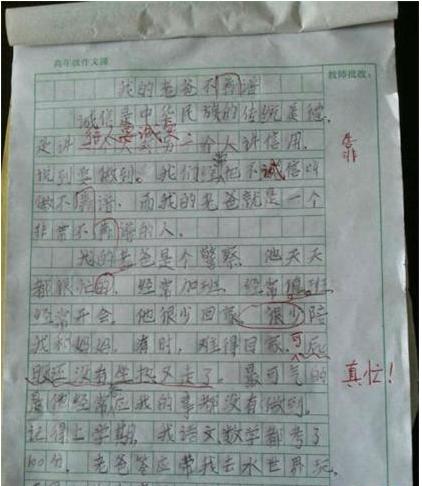 高年级作文簿
教师批改:
我的老爸不靠谱
诚信是中华民族的传统美德,
是讲 给人要诚实 一个人讲信用,
靠
说到要做到。我们常把不诚信叫
做不靠谱。而我的老爸就是一个
非常不靠谱的人。
我的老爸是个警察 他天天
都很忙的,经常加班 经常值班
经常开会。他很少回家 很少陪
我和妈妈。有时,难得回家,可屁
股还没有坐热又走了。最可气的
真忙!
是他经常应我的事都没有做到。
记得上学期,我语文数学都考了
100分,老爸答应带我去水世界玩。